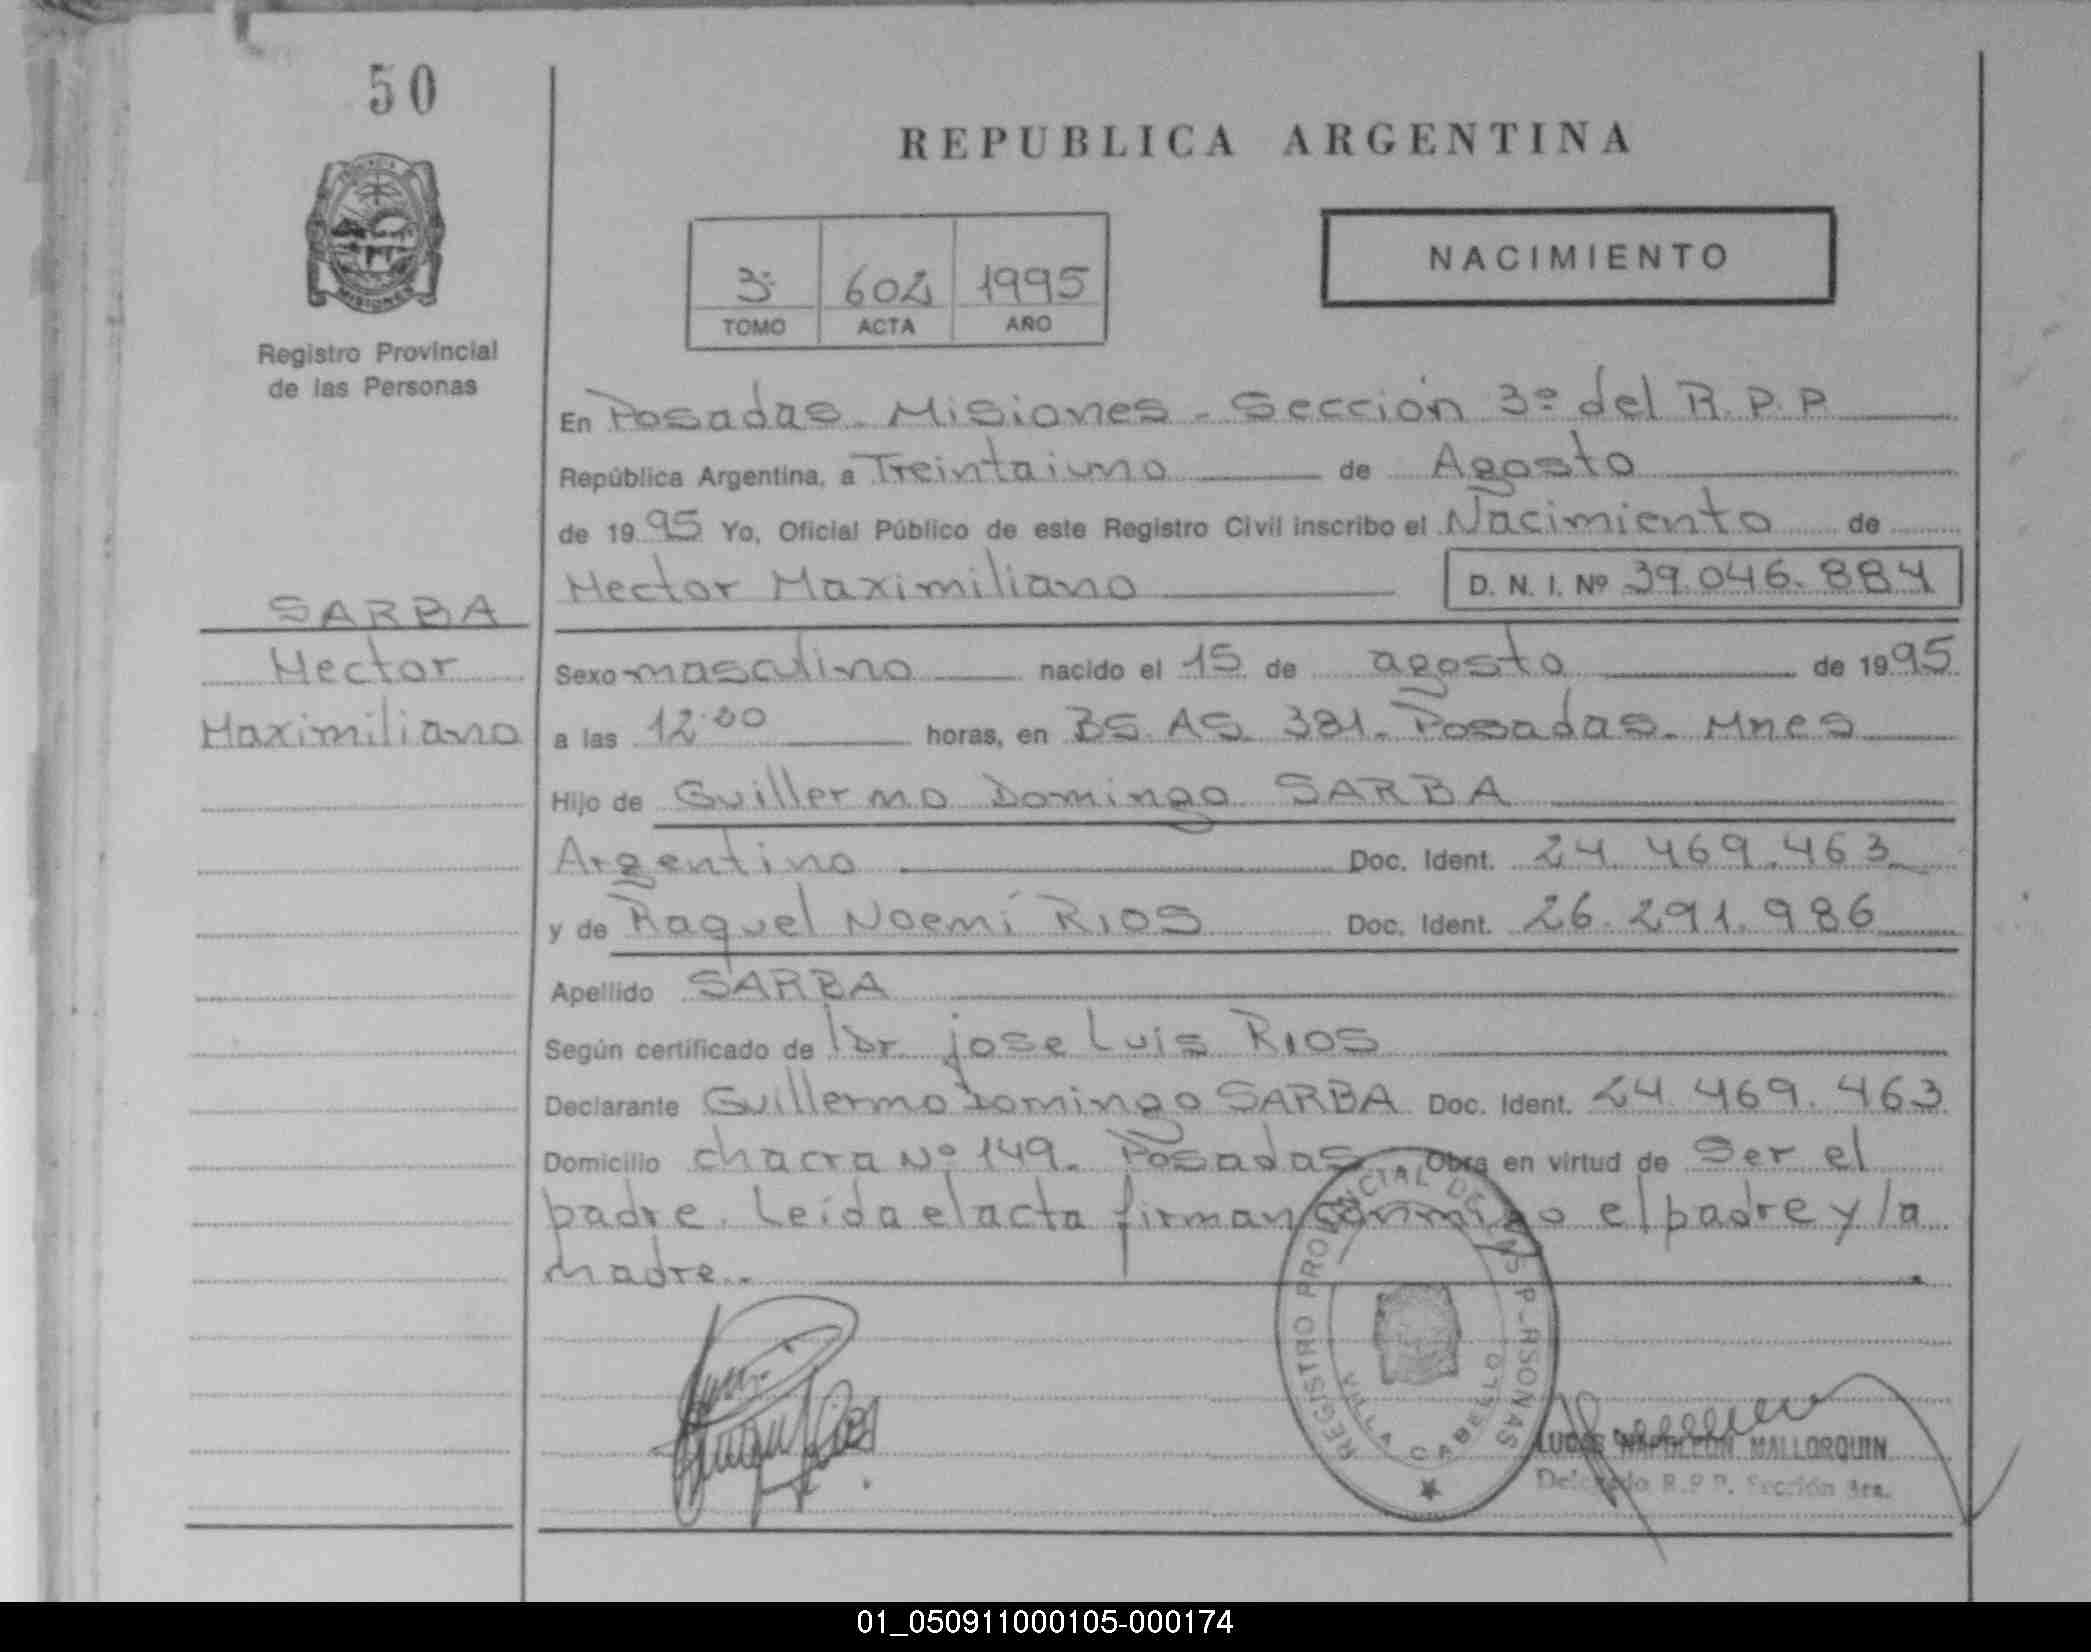 50
REPUBLICA ARGENTINA
NACIMIENTO
3º 602 1995
TOMO ACTA AÑO
MISIONES
Registro Provincial
de las Personas
En Posadas. Misiones - Sección 3º del R.P.P
República Argentina, a Treintaiuno de Agosto
de 1995 Yo, Oficial Público de este Registro Civil inscribo el Nacimiento de
Hector Maximiliano D. N. I. Nº 39.046.884
SARBA
Hector
Maximiliano
Sexo masculino nacido el 15 de agosto de 1995
a las 12:00 horas, en BS. AS. 381. Posadas. Mnes
Hijo de Guillermo Domingo SARBA
Argentino Doc. Ident. 24.469.463
y de Raquel Noemí RIOS Doc. Ident. 26.291.986
Apellido SARBA
Según certificado de Dr jose Luis RIOS
Declarante Guillermo Domingo SARBA Doc. Ident. 24.469.463
Domicilio chacra Nº 149. Posadas Obra en virtud de Ser el
padre. Leida el acta firman conmigo el padre y la
madre.
REGISTRO PROVINCIAL DE LAS PERSONAS
VILLA CABELLO
LUCAS NAPOLEON MALLORQUIN
Delegado R.P.P. Sección 3ra.
01_050911000105-000174